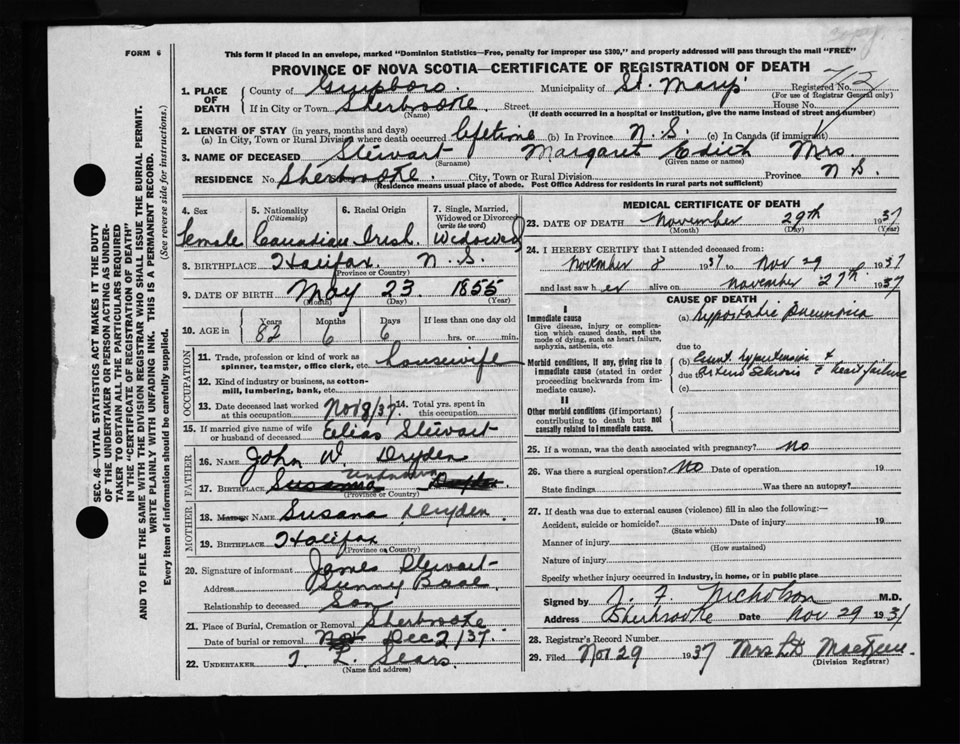 copy.
FORM 6
This form if placed in an envelope, marked "Dominion Statistics—Free, penalty for improper use $300," and properly addressed will pass through the mail "FREE"
PROVINCE OF NOVA SCOTIA—CERTIFICATE OF REGISTRATION OF DEATH
SEC. 46—VITAL STATISTICS ACT MAKES IT THE DUTY
OF THE UNDERTAKER OR PERSON ACTING AS UNDER-
TAKER TO OBTAIN ALL THE PARTICULARS REQUIRED
IN THE "CERTIFICATE OF REGISTRATION OF DEATH"
AND TO FILE THE SAME WITH THE DIVISION REGISTRAR WHO SHALL ISSUE THE BURIAL PERMIT.
WRITE PLAINLY WITH UNFADING INK. THIS IS A PERMANENT RECORD.
Every item of information should be carefully supplied. (See reverse side for instructions.)
1. PLACE OF DEATH County of Guysboro. Municipality of St. Mary's Registered No. 712
(For use of Registrar General only)
If in City or Town Sherbrooke Street House No.
(Name) (If death occurred in a hospital or institution, give the name instead of street and number)
2. LENGTH OF STAY (in years, months and days)
(a) In City, Town or Rural Division where death occurred lifetime (b) In Province N.S. (c) In Canada (if immigrant)
3. NAME OF DECEASED Stewart Margaret Edith Mrs.
(Surname) (Given name or names)
RESIDENCE No. Sherbrooke City, Town or Rural Division Province N S.
(Residence means usual place of abode. Post Office Address for residents in rural parts not sufficient)
4. Sex 5. Nationality (Citizenship) 6. Racial Origin 7. Single, Married, Widowed or Divorced (write the word)
female Canadian Irish. Widowed
8. BIRTHPLACE Halifax. N.S.
(Province or Country)
9. DATE OF BIRTH May 23. 1855
(Month) (Day) (Year)
10. AGE in Years Months Days If less than one day old
82 6 6 hrs. or min.
OCCUPATION
11. Trade, profession or kind of work as
spinner, teamster, office clerk, etc. housewife
12. Kind of industry or business, as cotton-
mill, lumbering, bank, etc.
13. Date deceased last worked at this occupation Nov 8/37. 14. Total yrs. spent in this occupation.
15. If married give name of wife
or husband of deceased Elias Stewart
FATHER
16. NAME John W. Dryden
unknown
17. BIRTHPLACE Susanna
(Province or Country)
MOTHER
18. Maiden NAME Susana Dryden.
19. BIRTHPLACE Halifax
(Province or Country)
20. Signature of informant James Stewart
Address
Relationship to deceased Son
21. Place of Burial, Cremation or Removal Sherbrooke
Date of burial or removal Nov Dec 2/37.
22. UNDERTAKER T. L. Sears.
(Name and address)
MEDICAL CERTIFICATE OF DEATH
23. DATE OF DEATH November 29th 1937
(Month) (Day) (Year)
24. I HEREBY CERTIFY that I attended deceased from:
November 8 1937 to Nov 29 1937
and last saw her alive on November 27th 1937
CAUSE OF DEATH
I
Immediate cause (a) Hypostatic Pneumonia
Give disease, injury or complica-
tion which caused death, not the
mode of dying, such as heart failure,
asphyxia, asthenia, etc. due to
Morbid conditions, if any, giving rise to (b) hypertension &
immediate cause (stated in order due to Arterio Sclerosis & heart failure
proceeding backwards from im-
mediate cause). (c)
II
Other morbid conditions (if important)
contributing to death but not
causally related to immediate cause.
25. If a woman, was the death associated with pregnancy? no
26. Was there a surgical operation? No Date of operation 19
State findings Was there an autopsy?
27. If death was due to external causes (violence) fill in also the following:—
Accident, suicide or homicide? Date of injury 19
(State which)
Manner of injury
(How sustained)
Nature of injury
Specify whether injury occurred in industry, in home, or in public place
Signed by J. F. Nicholson M.D.
Address Sherbrooke Date Nov 29 1931
28. Registrar's Record Number
29. Filed Nov 29 1937 Mrs
(Division Registrar)